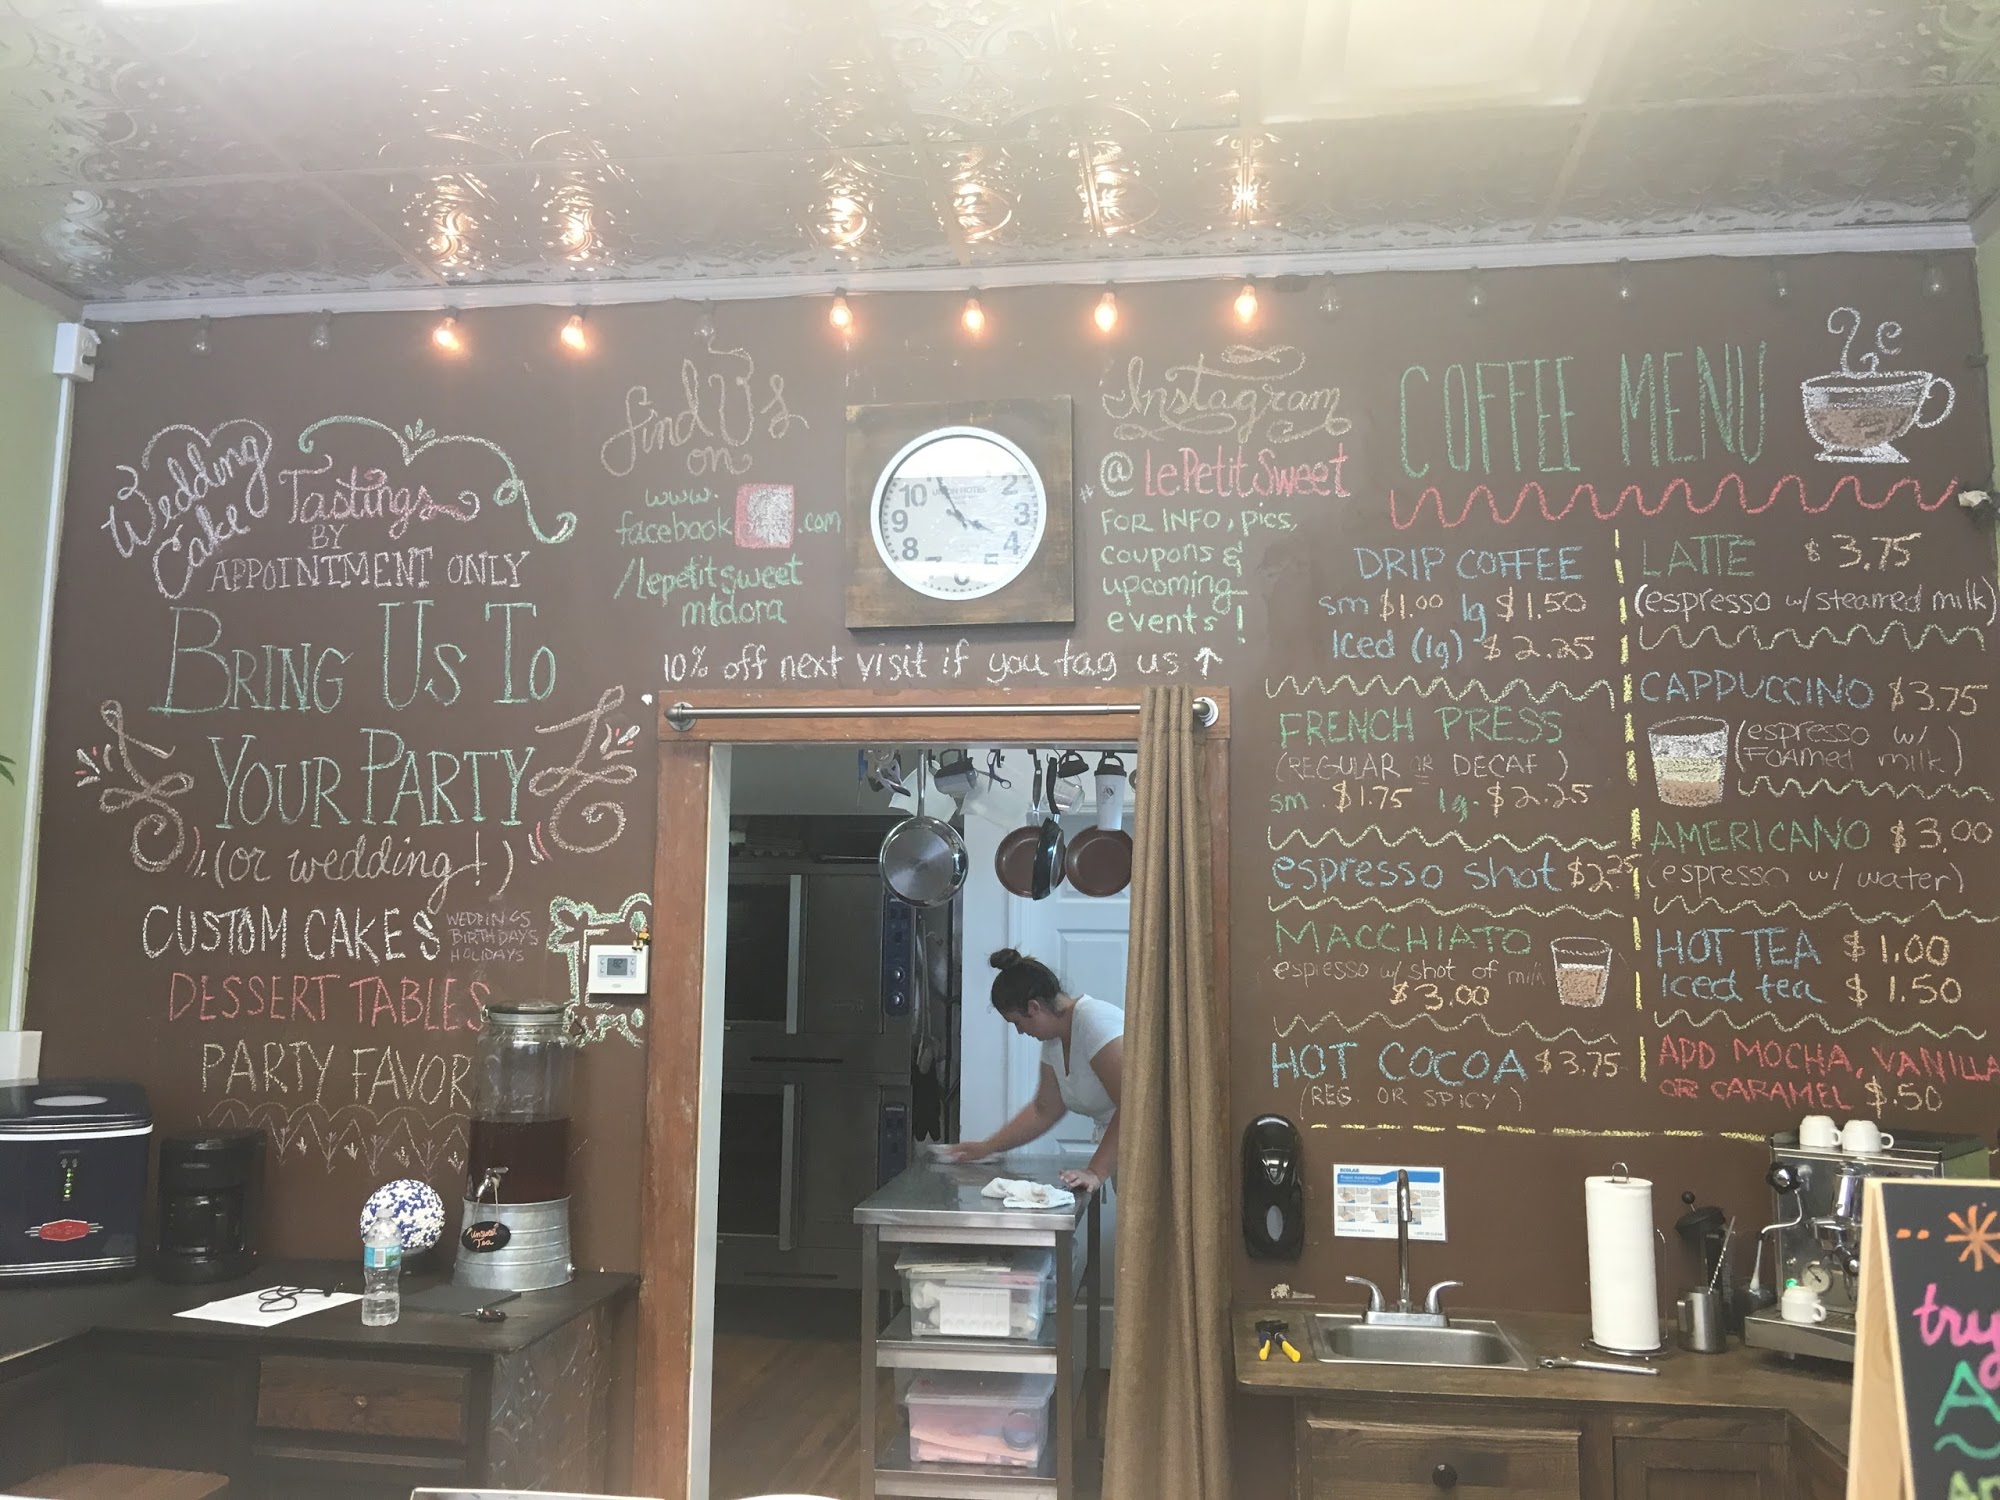 Wedding
Cake
Tastings
BY
APPOINTMENT ONLY
BRING US TO
YOUR PARTY
(or wedding!)
CUSTOM CAKES
WEDDINGS
BIRTHDAYS
HOLIDAYS
DESSERT TABLES
PARTY FAVOR
Unsweet
Tea
find Us
on
www.
facebook .com
/lepetitsweet
mtdora
10
2
9
3
8
4
7
6
5
Instagram
@ LePetitSweet
FOR INFO, pics,
coupons &
upcoming
events!
10% off next visit if you tag us ↑
COFFEE MENU
DRIP COFFEE
sm $1.00 lg $1.50
Iced (lg) $2.25
FRENCH PRESS
(REGULAR OR DECAF)
sm. $1.75 lg. $2.25
espresso shot $2.25
MACCHIATO
espresso w/ shot of milk
$3.00
HOT COCOA $3.75
(REG. OR SPICY)
LATTE $3.75
(espresso w/ steamed milk)
CAPPUCCINO $3.75
(espresso w/
FOAMED milk)
AMERICANO $3.00
(espresso w/ water)
HOT TEA $1.00
Iced tea $1.50
ADD MOCHA, VANILLA
OR CARAMEL $.50
ECOLAB
try
A